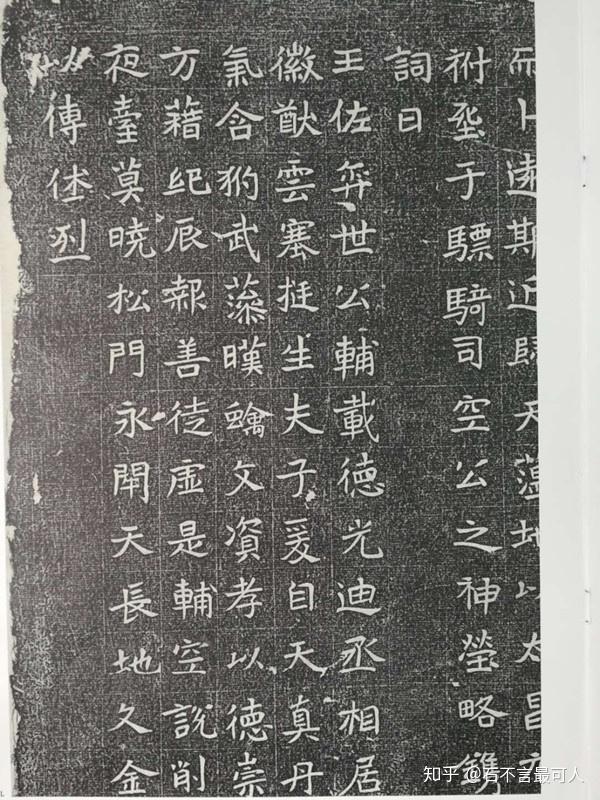 而卜遠斯近歸天蕩地以太昌元
祔塟于驃騎司空公之神塋略鐫
詞曰
王佐弈世公輔載德光迪丞相居
徽猷雲塞挺生夫子爰自天真丹
氣含豹武藻暎螭文資孝以德崇
方藉紀辰報善徒虛是輔空說削
夜臺莫曉松門永閇天長地久金
以傳休烈
知乎 @石不言最可人